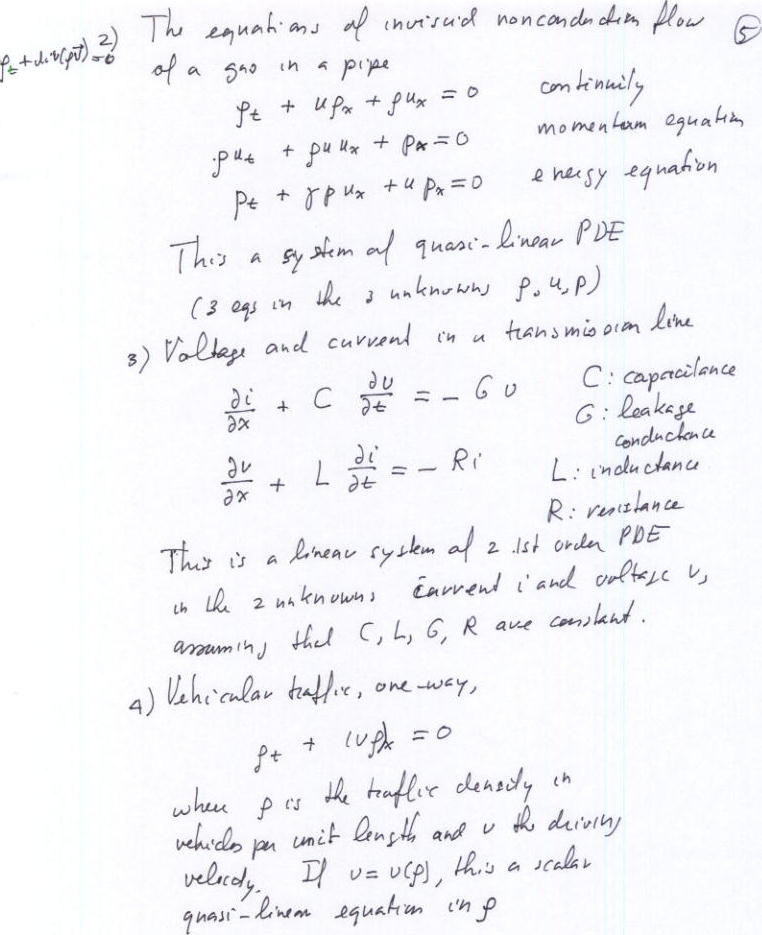 2) The equations of inviscid nonconduction flow ⑤
ρt + div(ρv⃗) = 0
of a gas in a pipe
ρt + uρx + ρux = 0 continuity
ρut + ρuux + px = 0 momentum equation
pt + γpux + upx = 0 energy equation
This a system of quasi-linear PDE
(3 eqs in the 3 unknowns ρ, u, p)
3) Voltage and current in a transmission line
∂i/∂x + C ∂v/∂t = - Gv C: capacitance
G: leakage
conductance
∂v/∂x + L ∂i/∂t = - Ri L: inductance
R: resistance
This is a linear system of 2 1st order PDE
in the 2 unknowns current i and voltage v,
assuming that C, L, G, R are constant.
4) Vehicular traffic, one-way,
ρt + (vρ)x = 0
when ρ is the traffic density in
vehicles per unit length and v the driving
velocity. If v = v(ρ), this a scalar
quasi-linear equation in ρ